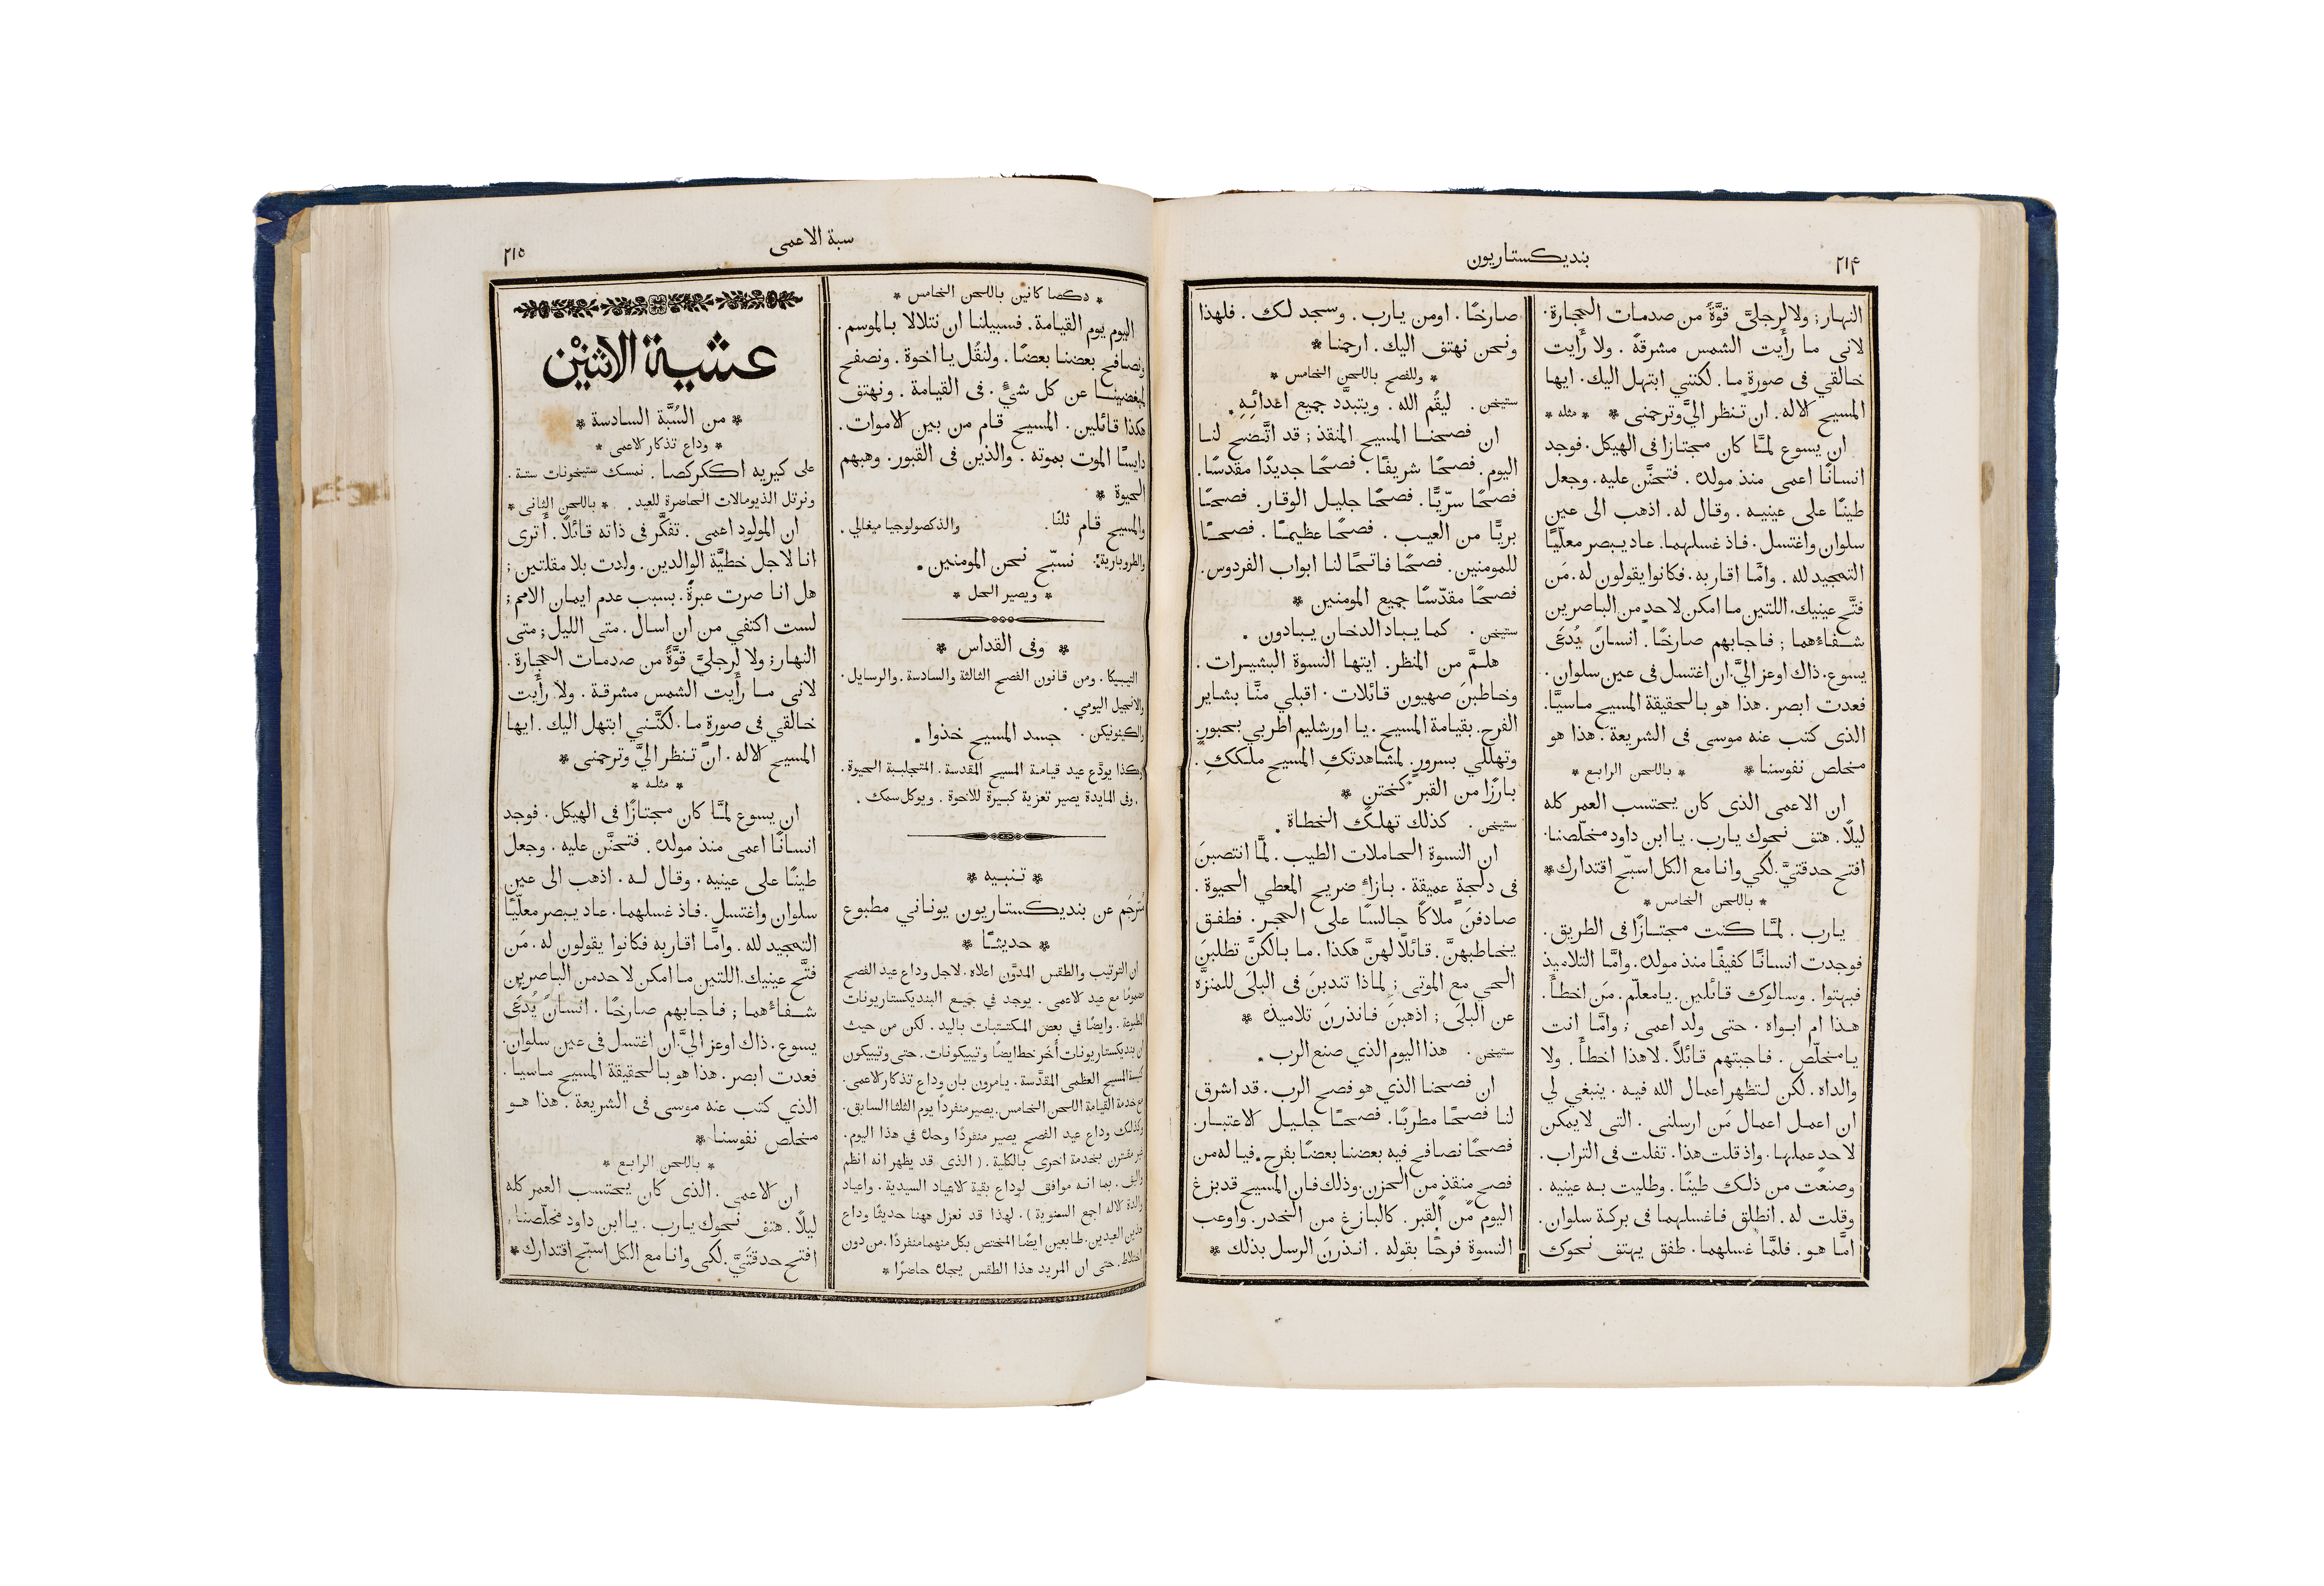 ٢١۴
بنديكستاريون
النهار; ولا لرجليَّ قوَّةً من صدمات الحجارة.
لانى ما رأَيت الشمس مشرقةً. ولا رأَيت
خالقي فى صورةٍ ما. لكننى ابتهل اليك. ايها
المسيح الاله. ان تنظر اليَّ وترحمنى * * مثله *
ان يسوع لمَّا كان مجتازا فى الهيكل. فوجد
انسانًا اعمى منذ مولده. فتحنَّن عليه. وجعل
طينًا على عينيه. وقال له. اذهب الى عين
سلوان واغتسل. فاذ غسلهما. عاد يبصر معلّيًا
التمجيد لله. وامَّا اقاربه. فكانوا يقولون له. مَن
فتَّح عينيك. اللتين ما امكن لاحدٍ من الباصرين
شفاءهما; فاجابهم صارخًا. انسانٌ يُدعَى
يسوع. ذاك اوعز اليَّ. ان اغتسل فى عين سلوان.
فعدت ابصر. هذا هو بالحقيقة المسيح ماسيَّا.
الذى كتب عنه موسى فى الشريعة. هذا هو
مخلص نفوسنا * * باللحن الرابع *
ان الاعمى الذى كان يحتسب العمر كله
ليلًا. هتف نحوك يارب. يا ابن داود مخلّصنا.
افتح حدقتيَّ. لكي وانا مع الكل اسبّح اقتدارك *
* باللحن الخامس *
يارب. لمَّا كنت مجتازًا فى الطريق.
فوجدت انسانًا كفيفًا منذ مولده. وامَّا التلاميذ
فبهتوا. وسالوك قائلين. يا معلّم. مَن اخطأَ.
هذا ام ابواه. حتى ولد اعمى; وامَّا انت
يا مخلّص. فاجبتهم قائلاً. لا هذا اخطأَ. ولا
والداه. لكن لتظهر اعمال الله فيه. ينبغي لي
ان اعمل اعمال مَن ارسلنى. التى لا يمكن
لاحدٍ عملها. واذ قلت هذا. تفلت فى التراب.
وصنعت من ذلك طينًا. وطليت به عينيه.
وقلت له. انطلق فاغسلهما فى بركة سلوان.
امَّا هو. فلمَّا غسلهما. طفق يهتف نحوك
صارخًا. اومن يارب. وسجد لك. فلهذا
ونحن نهتف اليك. ارحمنا *
* وللفصح باللحن الخامس *
ستيخن. ليقُم الله. ويتبدَّد جميع اعدائِهِ.
ان فصحنا المسيح المنقذ; قد اتَّضح لنا
اليوم. فصحًا شريفًا. فصحًا جديدًا مقدسًا.
فصحًا سرّيًّا. فصحًا جليل الوقار. فصحًا
بريًّا من العيب. فصحًا عظيمًا. فصحًا
للمومنين. فصحًا فاتحًا لنا ابواب الفردوس.
فصحًا مقدّسًا جميع المومنين *
ستيخن. كما يباد الدخان يبادون.
هلمَّ من المنظر. ايتها النسوة البشيرات.
وخاطبنَ صهيون قائلات. اقبلي منَّا بشاير
الفرح. بقيامة المسيح. يا اورشليم اطربي بحبورٍ.
وتهللي بسرورٍ. لمشاهدتكِ المسيح ملككِ.
بارزًا من القبر كختنٍ *
ستيخن. كذلك تهلك الخطاة.
ان النسوة الحاملات الطيب. لمَّا انتصبنَ
فى دلجةٍ عميقة. بازاءِ ضريح المعطي الحيوة.
صادفنَ ملاكًا جالسًا على الحجر. فطفق
يخاطبهنَّ. قائلًا لهنَّ هكذا. ما بالكنَّ تطلبنَ
الحي مع الموتى; لماذا تندبنَ فى البلَى للمنزَّه
عن البلَى; اذهبنَ فانذرنَ تلاميذه *
ستيخن. هذا اليوم الذي صنع الرب.
ان فصحنا الذي هو فصح الرب. قد اشرق
لنا فصحًا مطربًا. فصحًا جليل الاعتبار.
فصحًا نصافح فيه بعضنا بعضًا بفرح. فيا له من
فصح منقذٍ من الحزن. وذلك فان المسيح قد بزغ
اليوم من القبر. كالبازغ من الخدر. واوعب
النسوة فرحًا بقوله. انذرنَ الرسل بذلك *
سبة الاعمى
٢١٥
* دكصا كانين باللحن الخامس *
اليوم يوم القيامة. فسبيلنا ان نتلالا بالموسم.
ونصافح بعضنا بعضًا. ولنقُل يا اخوة. ونصفح
لمبغضينا عن كل شيءٍ. فى القيامة. ونهتف
هكذا قائلين. المسيح قام من بين الاموات.
دايسًا الموت بموته. والذين فى القبور. وهبهم
الحيوة *
والمسيح قام ثلثًا. والذكصولوجيا ميغالي.
والطروبارية. نسبّح نحن المومنين.
* ويصير الحل *
* وفى القداس *
التيبيكا. ومن قانون الفصح الثالثة والسادسة. والرسايل.
والانجيل اليومي.
والكينونيكن. جسد المسيح خذوا.
وهكذا يودَّع عيد قيامة المسيح المقدسة. المتجلببة الحيوة.
وفى المايدة يصير تعزية كبيرة للاخوة. ويوكل سمك.
* تنبيه *
مُترجَم عن بنديكستاريون يوناني مطبوع
* حديثًا *
ان الترتيب والطقس المدوَّن اعلاه. لاجل وداع عيد الفصح
مضمومًا مع عيد الاعمى. يوجد في جميع البنديكستاريونات
المطبوعة. وايضًا في بعض المكتتبات باليد. لكن من حيث
ان بنديكستاريونات أُخَر خط ايضًا وتيبيكونات. حتى وتيبيكون
كنيسة المسيح العظمى المقدَّسة. يامرون بان وداع تذكار الاعمى.
مع خدمة القيامة اللحن الخامس. يصير منفردًا يوم الثلثا السابق.
وكذلك وداع عيد الفصح يصير منفردًا وحده في هذا اليوم.
غير مقترن بخدمة اخرى بالكلية. (الذى قد يظهر انه انظم
واليق. بما انه موافق لوداع بقية الاعياد السيدية. واعياد
والدة الاله اجمع السنوية). لهذا قد نعزل ههنا حديثًا وداع
هذين العيدين. طابعين ايضًا المختص بكل منهما منفردًا. من دون
اختلاط. حتى ان المريد هذا الطقس يجده حاضرًا *
عشية الاثنيْن
* من السُبَّة السادسة *
* وداع تذكار الاعمى *
على كيريه اككركصا. نمسك ستيخونات ستة.
ونرتل الذيومالات الحاضرة للعيد. * باللحن الثانى *
ان المولود اعمى. تفكَّر فى ذاته قائلًا. أَترى
انا لاجل خطيَّة الوالدين. ولدت بلا مقلتين;
هل انا صرت عبرةً. بسبب عدم ايمان الامم;
لست اكتفي من ان اسال. متى الليل; متى
النهار; ولا لرجليَّ قوَّةً من صدمات الحجارة.
لانى ما رأَيت الشمس مشرقة. ولا رأَيت
خالقي فى صورةٍ ما. لكنَّنى ابتهل اليك. ايها
المسيح الاله. ان تنظر اليَّ وترحمنى *
* مثله *
ان يسوع لمَّا كان مجتازًا فى الهيكل. فوجد
انسانًا اعمى منذ مولده. فتحنَّن عليه. وجعل
طينًا على عينيه. وقال له. اذهب الى عين
سلوان واغتسل. فاذ غسلهما. عاد يبصر معلّيًا
التمجيد لله. وامَّا اقاربه فكانوا يقولون له. مَن
فتَّح عينيك. اللتين ما امكن لاحد من الباصرين
شفاءهما; فاجابهم صارخًا. انسانٌ يُدعَى
يسوع. ذاك اوعز اليَّ. ان اغتسل فى عين سلوان.
فعدت ابصر. هذا هو بالحقيقة المسيح ماسيا.
الذي كتب عنه موسى فى الشريعة. هذا هو
مخلص نفوسنا *
* باللحن الرابع *
ان الاعمى. الذى كان يحتسب العمر كله
ليلًا. هتف نحوك يارب. يا ابن داود مخلّصنا.
افتح حدقتَيَّ. لكى وانا مع الكل اسبّح اقتدارك *